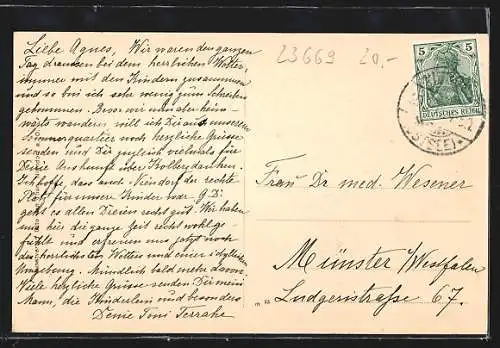 Liebe Agnes, Wir waren den ganzen
Tag draussen bei dem herrlichen Wetter
immer mit den Kindern zusammen
und so bin ich sehr wenig zum Schreiben
gekommen. Bevor wir uns aber heim-
wärts wenden will ich Dir aus unserem
Sommerquartier noch herzliche Grüsse
senden und Dir zugleich vielmals für
Deine Auskunft über Kolberg danken.
Ich hoffe, dass auch Niendorf der rechte
Platz für unsere Kinder war. G. D.
geht es allen Dreien recht gut. Wir haben
uns hier die ganze Zeit recht wohl ge-
fühlt und erfreuen uns jetzt noch
des herrlichsten Wetters und einer idyllischen
Umgebung. Mündlich bald mehr davon.
Viele herzliche Grüsse senden Dir mein
Mann, die Kinderlein und besonders
Deine Toni
23669 20,-
5 5
DEUTSCHES REICH
Frau Dr med. Wesener
Münster i/Westfalen
Ludgeristraße 67.